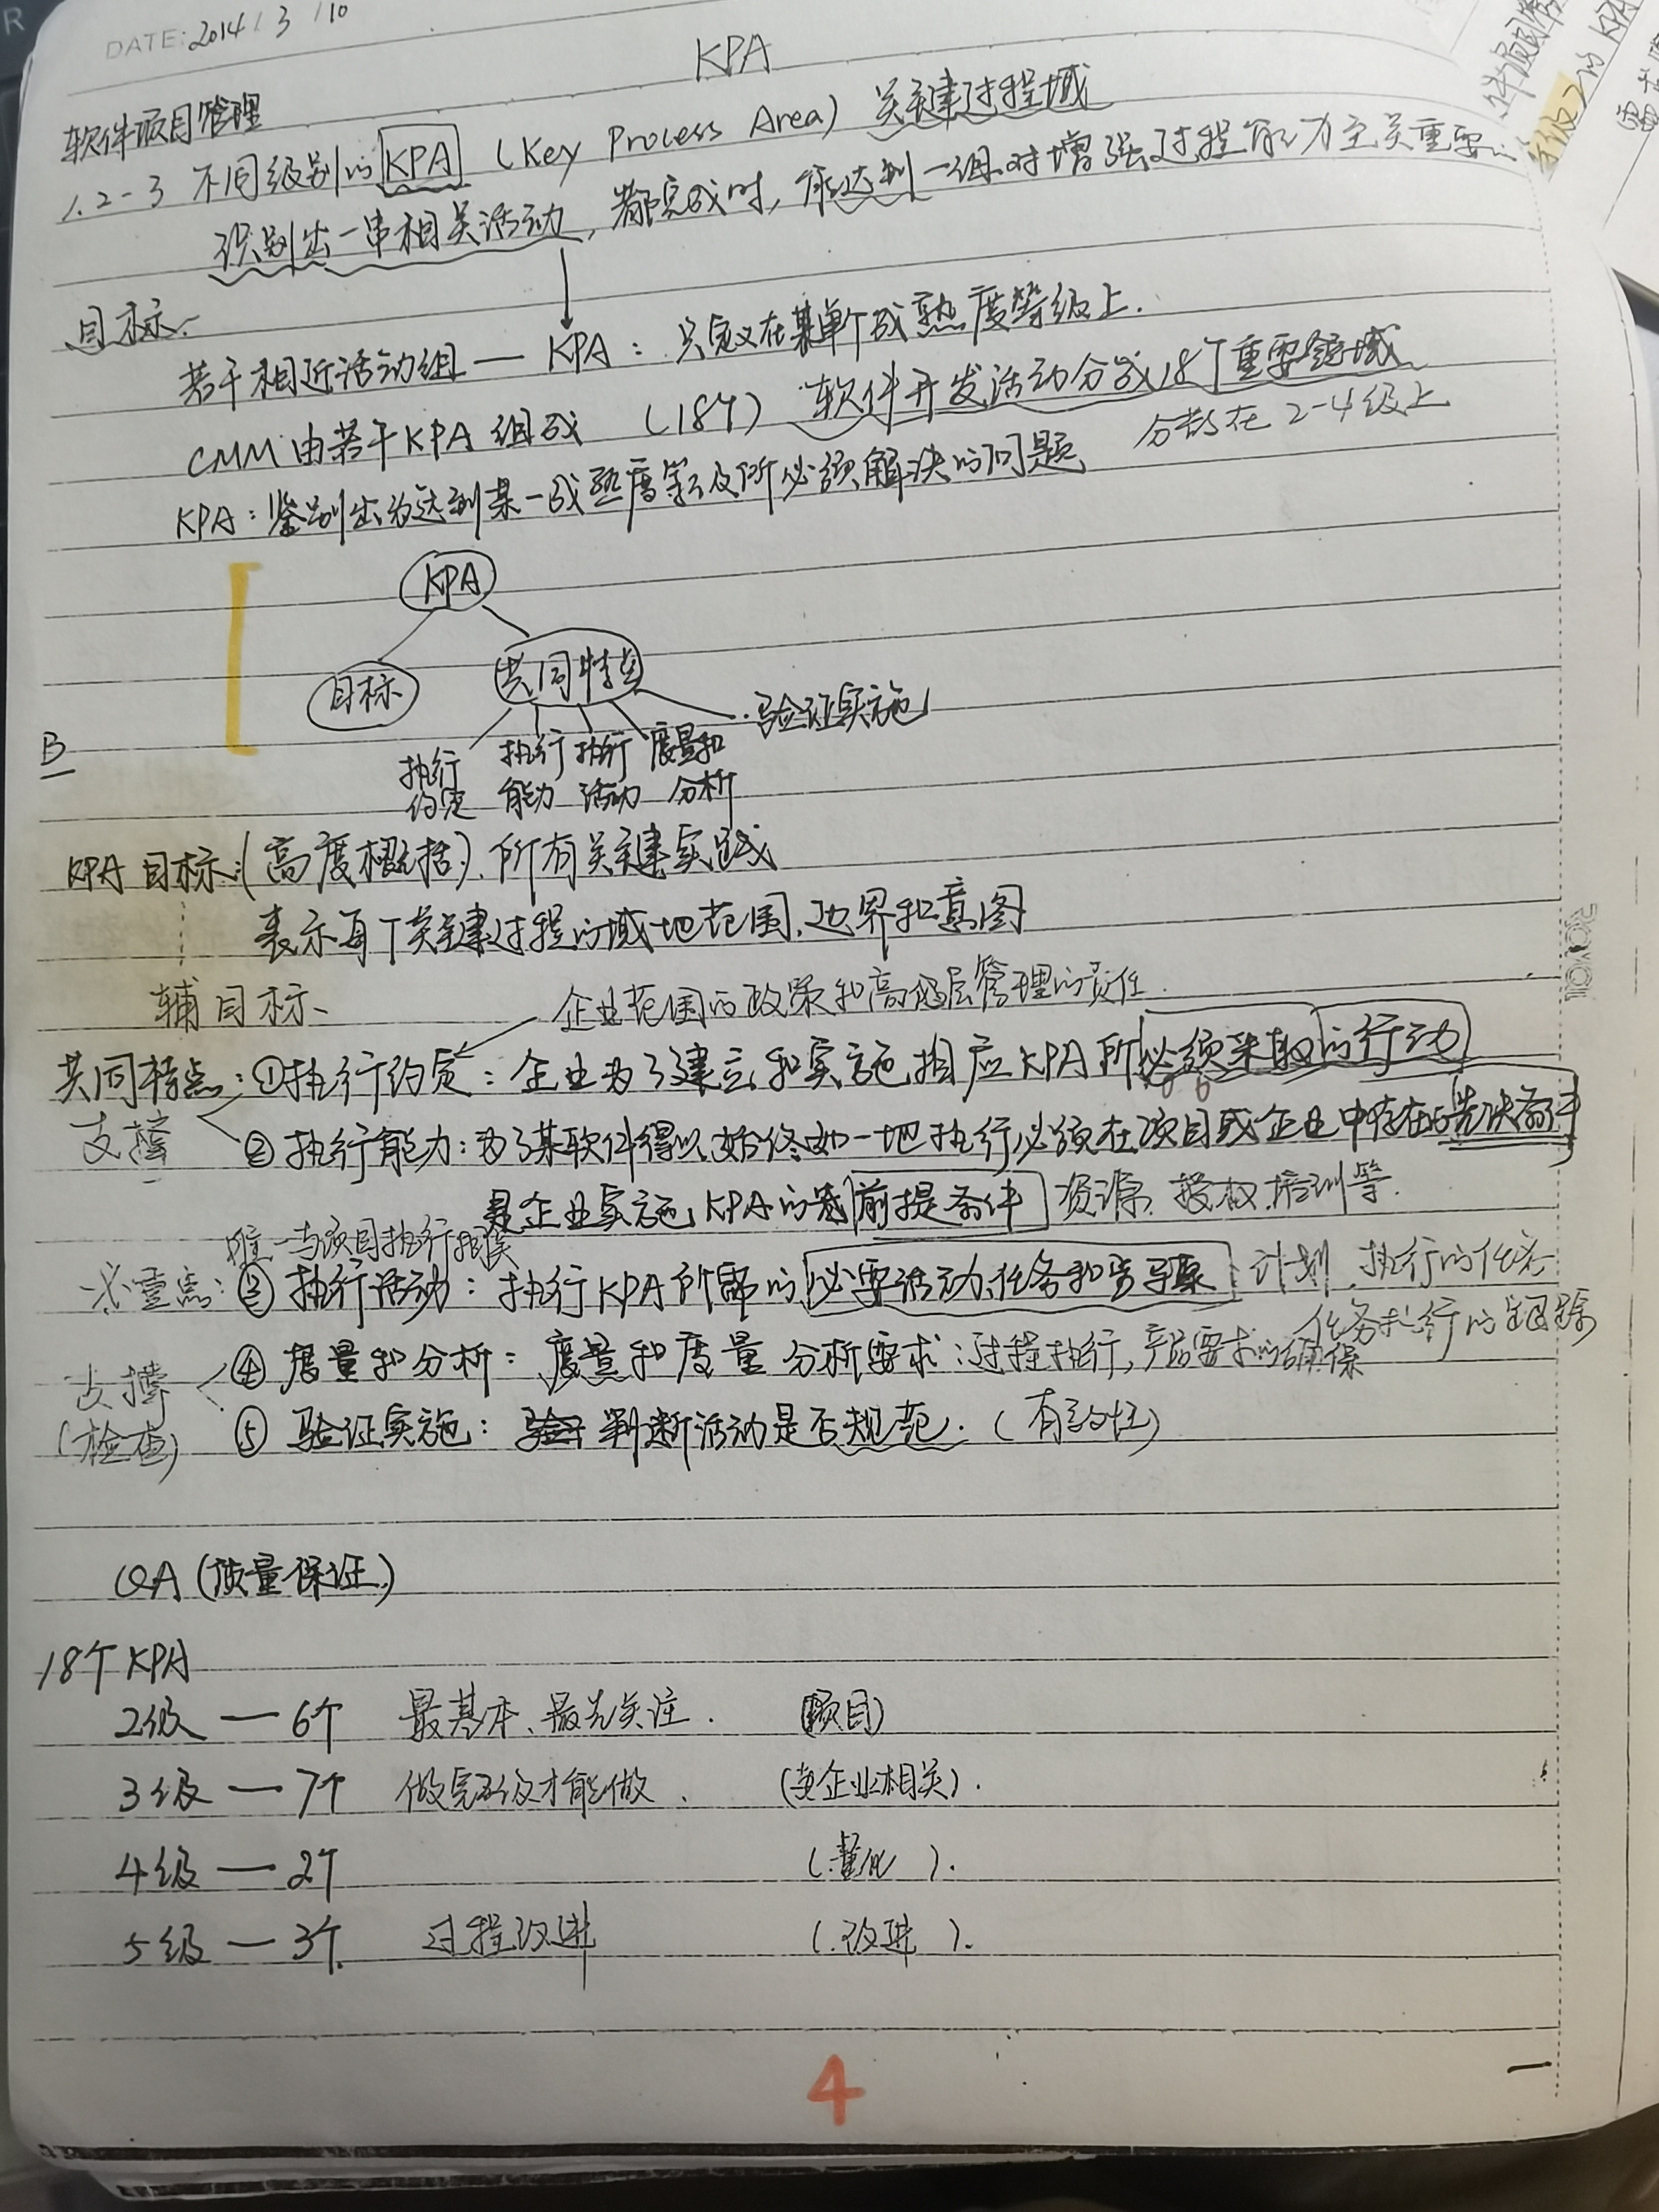 DATE: 2014 / 3 / 10
KPA
软件项目管理
1.2-3 不同级别的 KPA (Key Process Area) 关键过程域
识别出一串相关活动,都完成时,能达到一组对增强过程能力至关重要
目标.
若干相近活动组 — KPA: 只定义在某单个成熟度等级上.
CMM由若干KPA组成 (18个) 软件开发活动分成18个重要领域
分散在2-4级上
KPA:鉴别出为达到某一成熟度等级所必须解决的问题
KPA
目标 共同特点
验证实施
执行约定 执行能力 执行活动 度量和分析
B
KPA目标:(高度概括).所有关键实践
表示每个关键过程的域地范围.边界和意图
辅目标、
企业范围的政策和高级层管理的责任.
共同特点:①执行约定:企业为了建立和实施相应KPA所必须采取的行动
支撑
②执行能力:为了某软件得以始终如一地执行必须在项目或企业中存在的先决条件
是企业实施KPA的前提条件 资源.授权.培训等.
唯一与项目执行相关
重点:③执行活动:执行KPA所需的必要活动、任务和 计划.执行的任务
任务执行的跟踪
支撑 ④度量和分析:度量和度量分析要求:过程执行,产品要求的确保
(检查) ⑤验证实施: 判断活动是否规范.(有效性)
QA(质量保证)
18个KPA
2级 — 6个 最基本、最先关注. (项目)
3级 — 7个 做完2级才能做. (与企业相关).
4级 — 2个 (量化).
5级 — 3个. 过程改进 (改进).
4
ROYAL